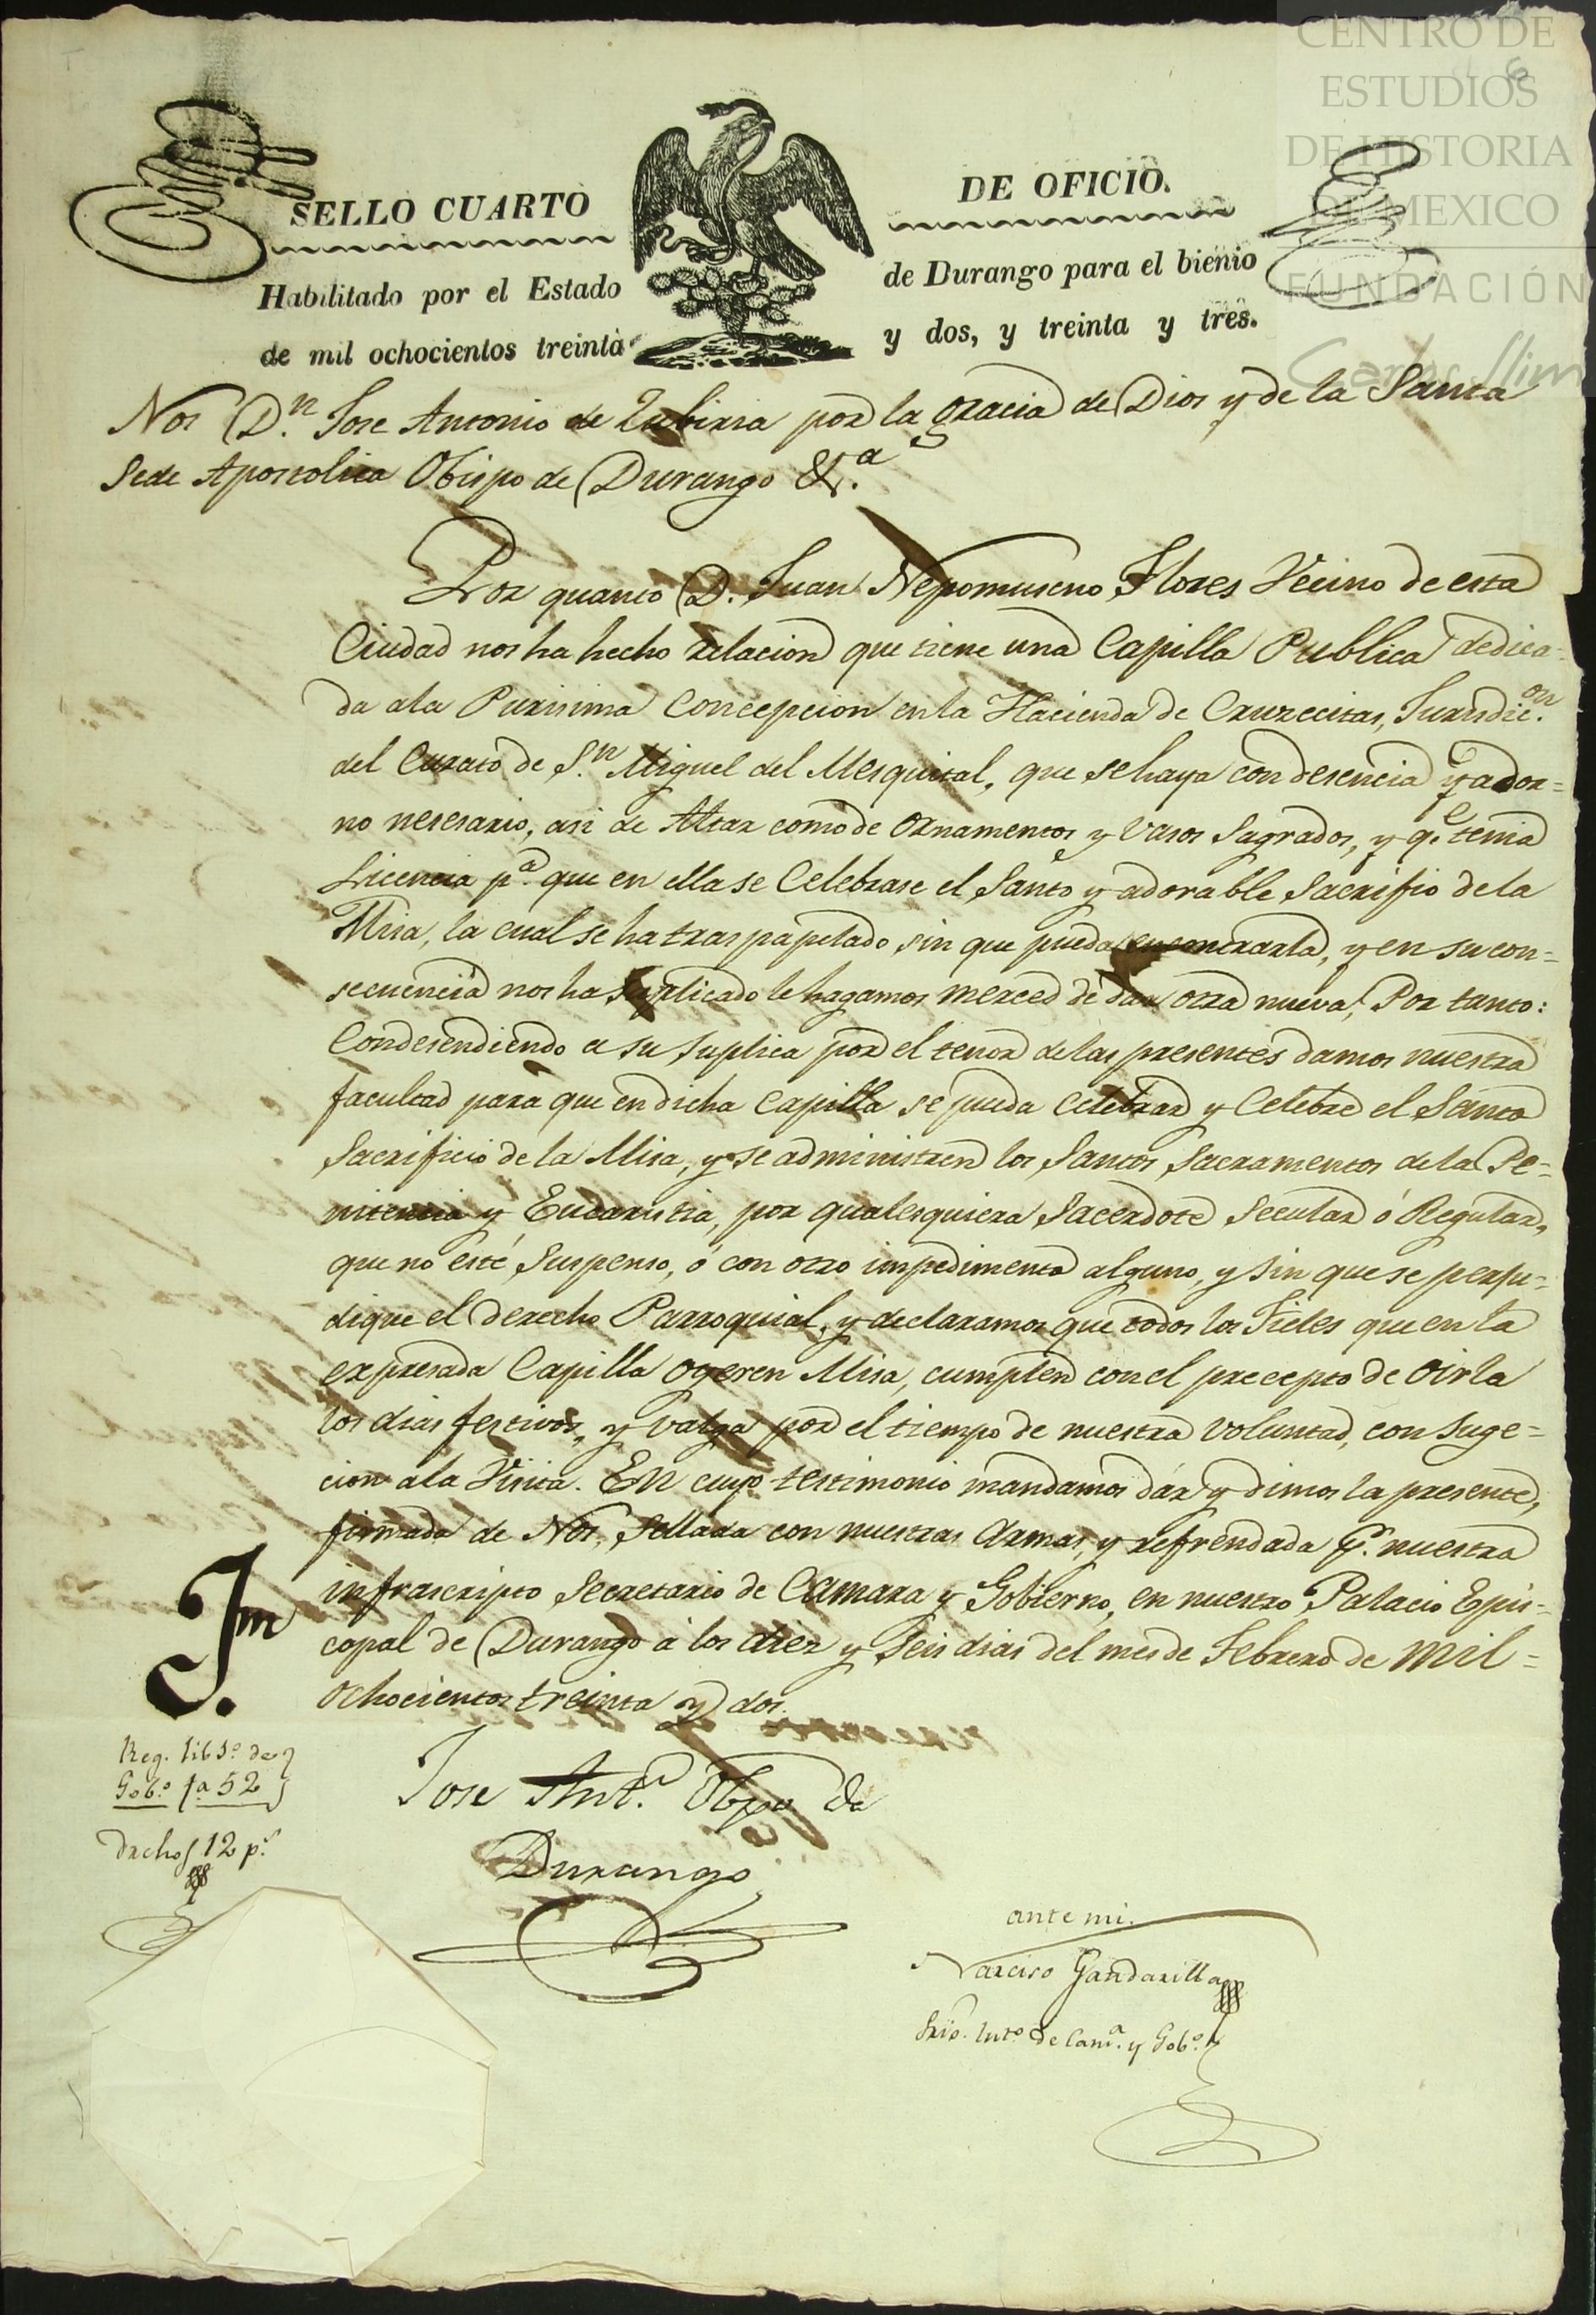 CENTRO DE
ESTUDIOS
DE HISTORIA
DE MEXICO
FUNDACIÓN
Carlos Slim
6
SELLO CUARTO DE OFICIO.
Habilitado por el Estado de Durango para el bienio
de mil ochocientos treinta y dos, y treinta y tres.
Nos D.n Jose Antonio de Zubiria por la gracia de Dios y de la Santa
Sede Apostolica Obispo de Durango &.a
Por quanto D. Juan Nepomuseno Flores Vecino de esta
Ciudad nos ha hecho relacion que tiene una Capilla Publica dedica-
da ala Purisima Concepcion en la Hacienda de Cruzecitas, Jurisdic.on
del Curato de S.n Miguel del Mesquital, que se haya con desencia y ador=
no nesesario, asi de Altar como de Ornamentos y Vasos Sagrados, y q.e tenia
Licencia p.a que en ella se Celebrase el Santo y adorable Sacrifio de la
Misa, la cual se ha traspapelado sin que pueda encontrarla, y en su con=
secuencia nos ha suplicado le hagamos merced de dar otra nueva; Por tanto:
Condesendiendo a su suplica por el tenor de las presentes damos nuestra
facultad para que en dicha Capilla se pueda celebrar y Celebre el Santo
Sacrificio de la Misa, y se administren los Santos Sacramentos de la Pe=
nitencia y Eucaristia, por qualesquiera Sacerdote Secular ó Regular,
que no esté suspenso, ó con otro impedimento alguno, y sin que se perju=
dique el derecho Parroquial, y declaramos que todos los Fieles que en la
expresada Capilla oyeren Misa, cumplen con el precepto de oirla
los dias festivos, y valga por el tiempo de nuestra voluntad, con suge=
cion ala Visita. En cuyo testimonio mandamos dár y dimos la presente,
firmada de Nos, sellada con nuestras Armas, y refrendada p.r nuestra
infrascripto Secretario de Camara y Gobierno, en nuestro Palacio Epis=
copal de Durango á los diez y seis dias del mes de Febrero de mil=
ochocientos treinta y dos.
Jose Ant.o Obpo de
Durango
Reg. lib 5.o de
Gob.o f.a 52
drchos 12 p.s
ante mi.
Narciso Gandarilla
Srio. Int.o de Cam.a y Gob.o